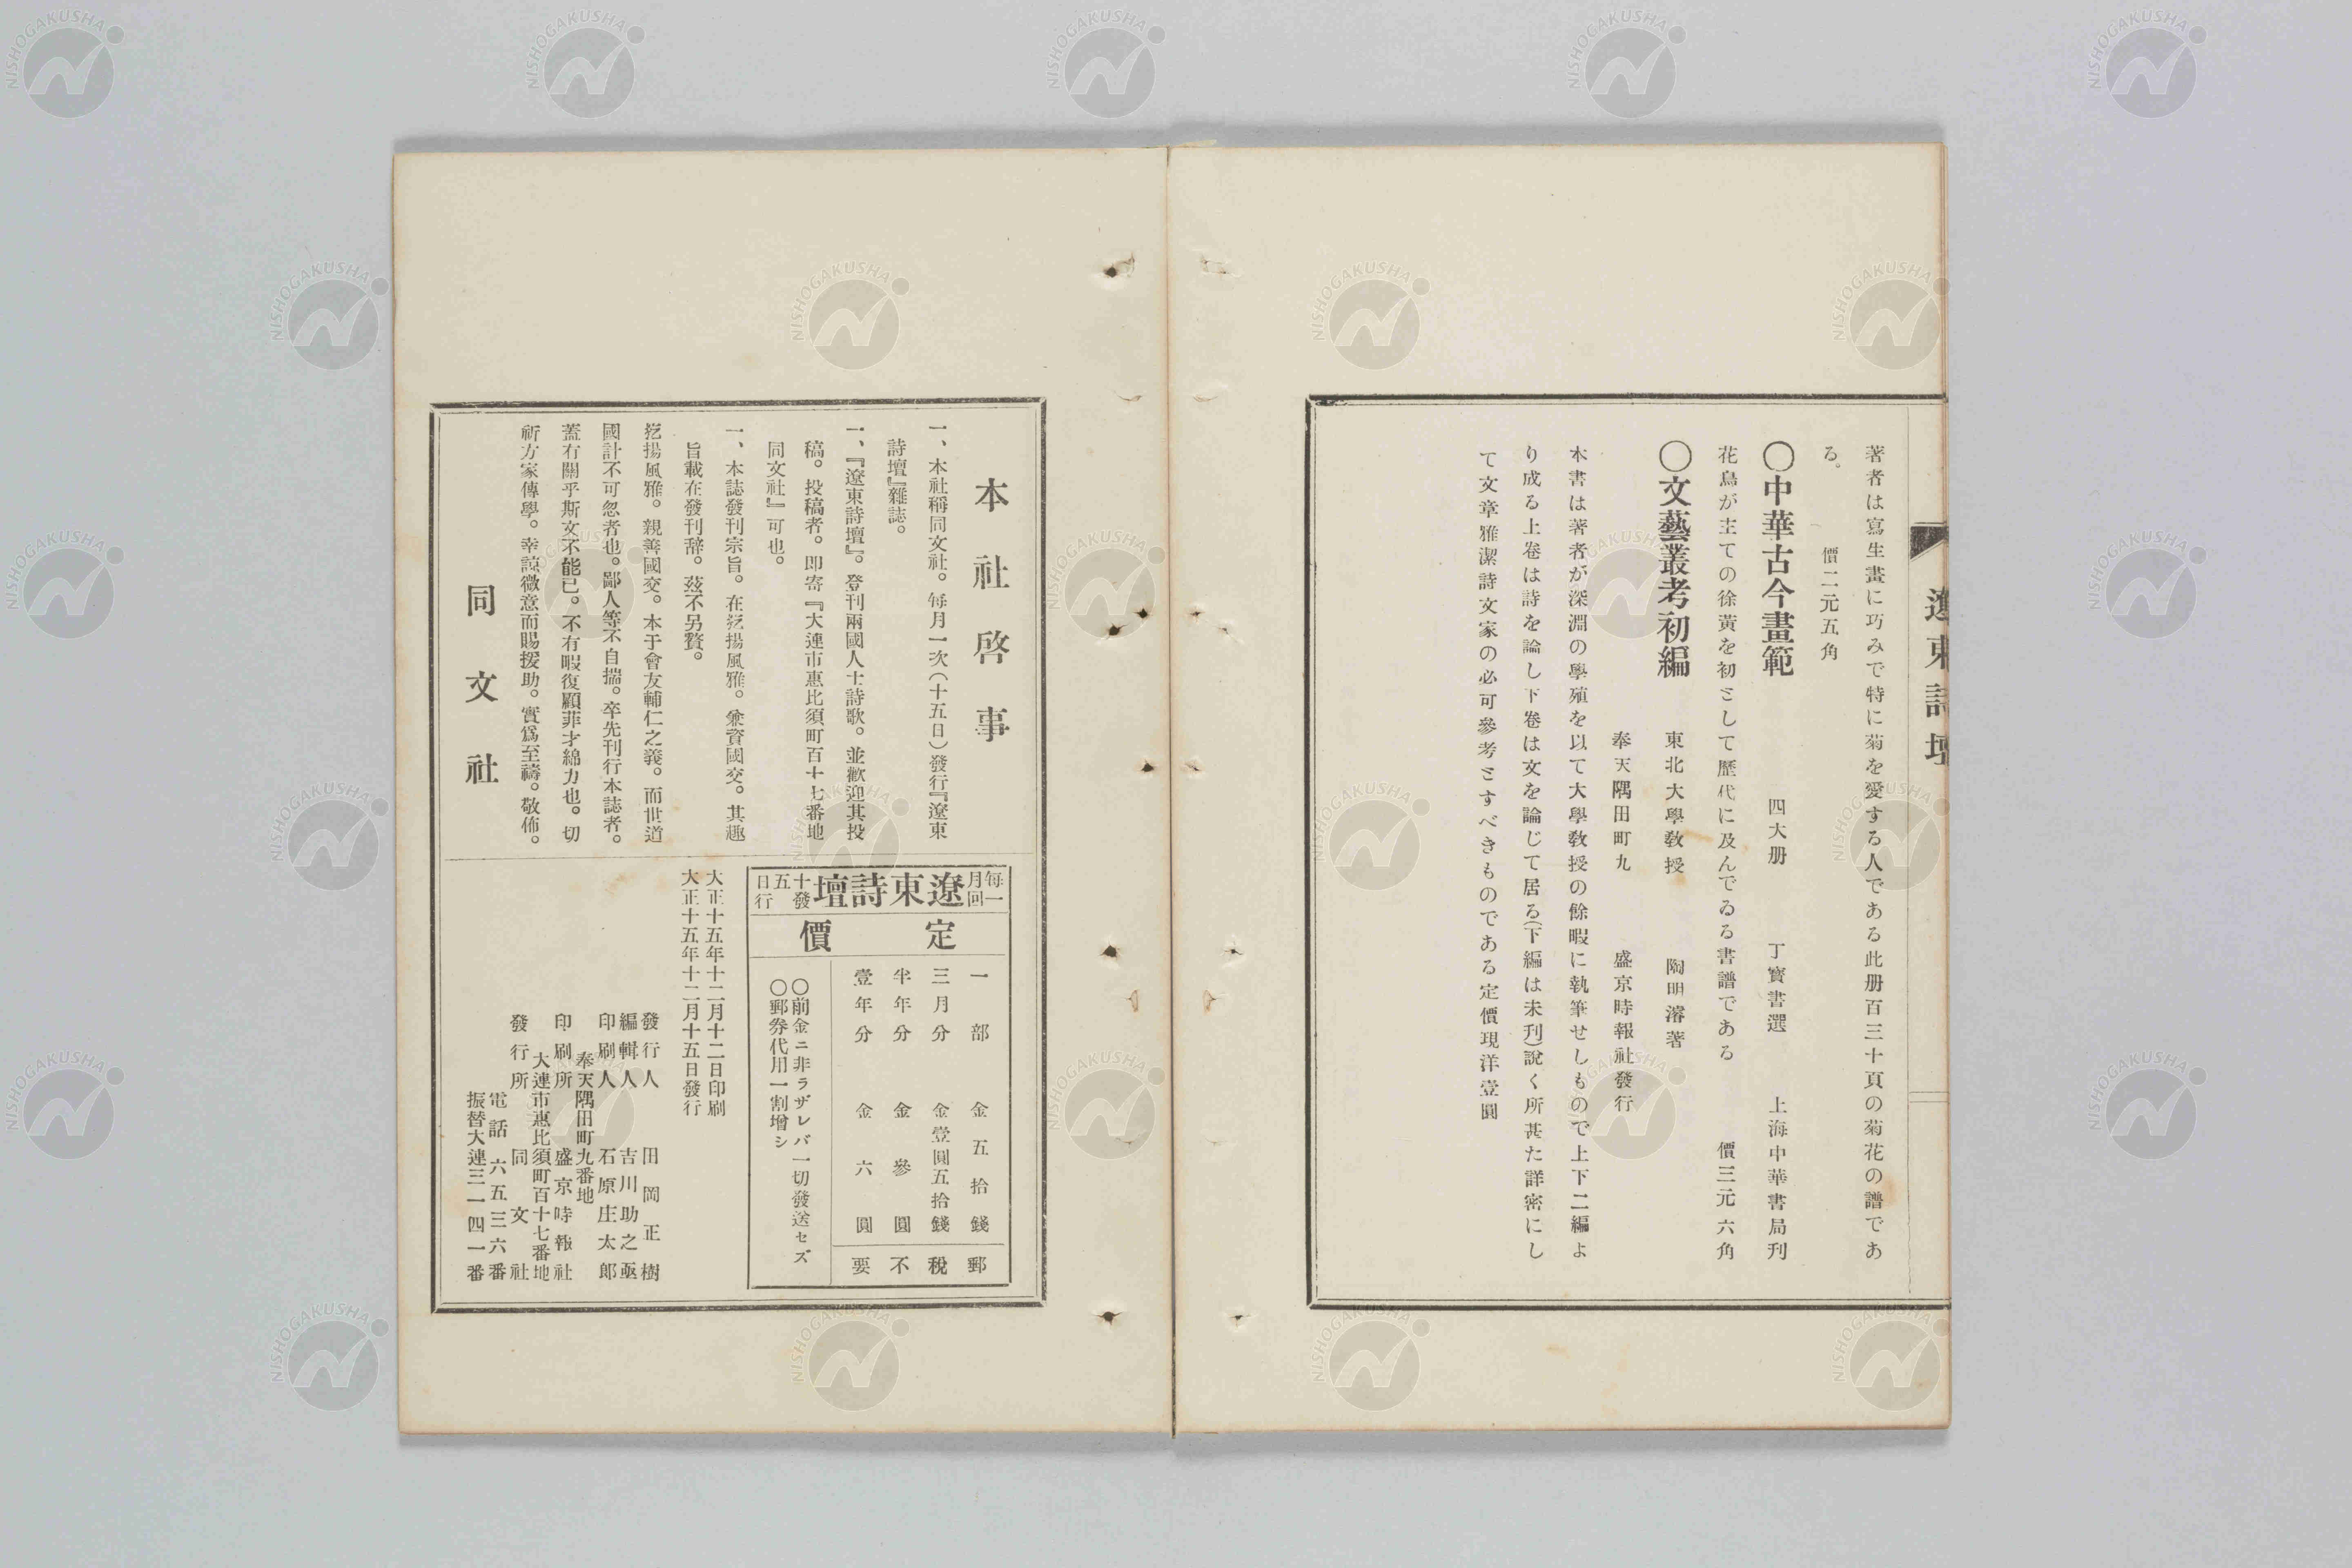 遼東詩壇
著者は寫生畫に巧みで特に菊を愛する人である此册百三十頁の菊花の譜であ
る。　價二元五角
〇中華古今畫範　四大册　丁寶書選　上海中華書局刊
花鳥が主ての徐黃を初として歷代に及んでゐる書譜である　價三元六角
〇文藝叢考初編　東北大學教授　陶明濬著
奉天隅田町九　盛京時報社發行
本書は著者が深淵の學殖を以て大學敎授の餘暇に執筆せしもので上下二編よ
り成る上卷は詩を論し下卷は文を論じて居る(下編は未刋)說く所甚た詳密にし
て文章雅潔詩文家の必可參考とすべきものである定價現洋壹圓
本社啓事
一、本社稱同文社。每月一次(十五日)發行『遼東
詩壇』雜誌。
一、『遼東詩壇』。登刊兩國人士詩歌。並歡迎其投
稿。投稿者。即寄『大連市惠比須町百十七番地
同文社』可也。
一、本誌發刊宗旨。在挖揚風雅。兼資國交。其趣
旨載在發刊辞。茲不另贅。
挖揚風雅。親善國交。本于會友輔仁之義。而世道
國計不可忽者也。鄙人等不自揣。卒先刊行本誌者。
蓋有關乎斯文不能已。不有暇復顧菲才綿力也。切
祈方家傳學。幸諒微意而賜援助。實爲至禱。敬佈。
同文社
每月一回
遼東詩壇
十五日發行
定價
一部　金五拾錢　郵
三月分　金壹圓五拾錢　稅
半年分　金參圓　不
壹年分　金六圓　要
〇前金ニ非ラザレバ一切發送セズ
〇郵券代用一割增シ
大正十五年十二月十二日印刷
大正十五年十二月十五日發行
發行人　田岡正樹
編輯人　吉川助之亟
印刷人　石原庄太郎
奉天隅田町九番地
印刷所　盛京時報社
大連市惠比須町百十七番地
發行所　同文社
電話六五三六番
振替大連三一四一番
NISHOGAKUSHA